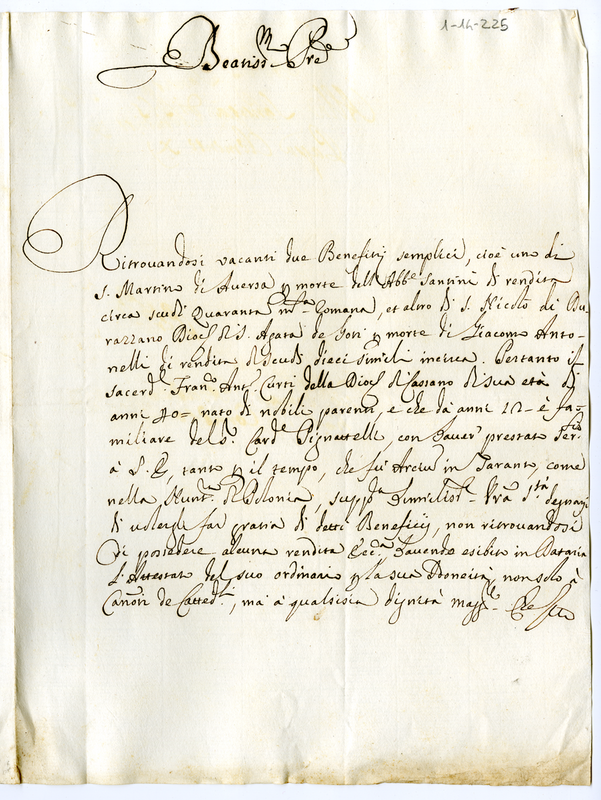 1-14-225
Beatiss.mo Pre
Ritrovandosi vacanti due Benefitij semplici, cioè uno di
S. Martino di Aversa p morte dell'Abb.e Santini di rendita
circa scudi Quaranta m.ta Romana, et altro di S. Nicolò di Du-
razzano Dioc. di S. Agata de Goti p morte di Giacomo Anto-
nelli di rendita di scudi dieci simili incirca. Pertanto il
sacerd. Fran.o Ant. Curti della Dioc. di Cassano di sua età di
anni 40= nato di nobili parenti, e che da anni 12- è fa-
miliare del S. Card.e Pignattelli, con haver prestato ser.tio
à S. E. tanto p il tempo, che fu Arciv. in Taranto, come
nella Nunt.ra di Polonia, supp.ca humiliss. Vra S.tà degnarsi
di volerli far gratia di detti Beneficij, non ritrovandosi
di possedere alcuna rendita Ecc.a havendo esibito in Dataria
l'Attestato del suo ordinario p la sua Idoneità, non solo à
Canon. de Catted., ma à qualsisia dignità magg.e Che